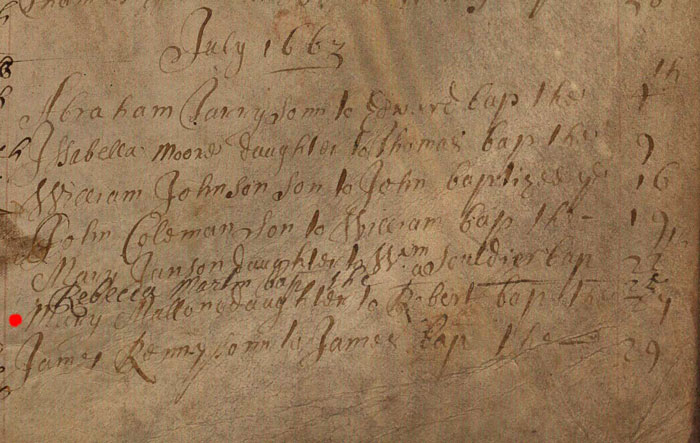 July 1663
th
Abraham Jarry sonn to Edward bap the
Issabella Moore daughter to Thomas bap the 9
William Johnson son to John baptized ye 16
John Coleman son to William bap the - 19
Mary Janson daughter to Wm a Souldier bap 22
Rebecca Martin bap the
Mary Mallon daughter to Robert bap the
James Kenny sonn to James bap the 29